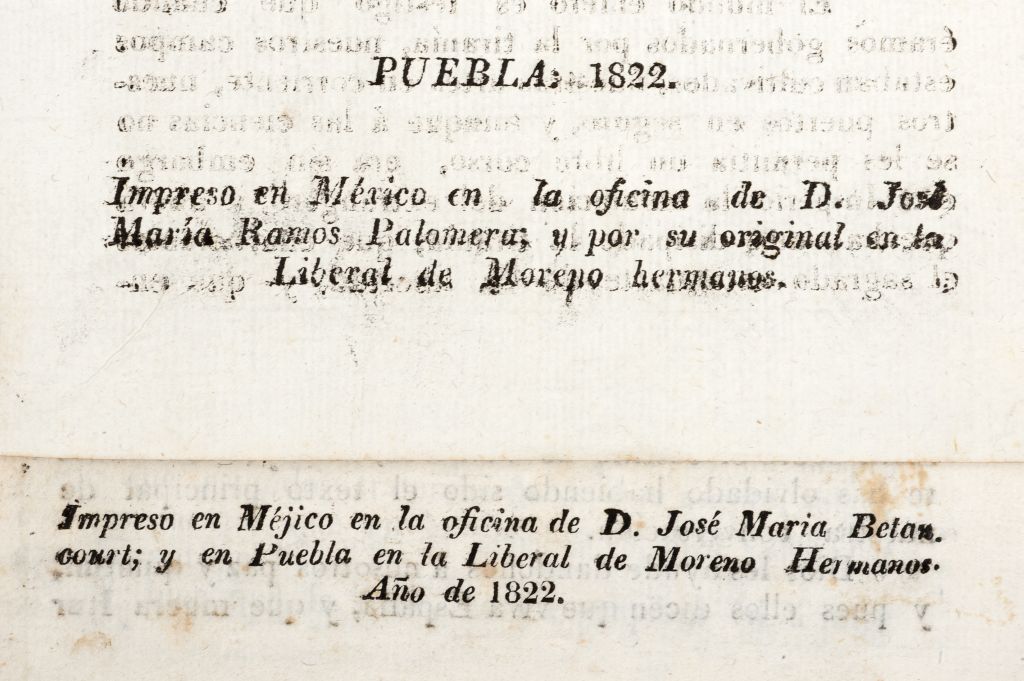 PUEBLA: 1822.
Impreso en México en la oficina de D. José
María Ramos Palomera; y por su original en la
Liberal de Moreno hermanos.
Impreso en Méjico en la oficina de D. José Maria Betan.
court; y en Puebla en la Liberal de Moreno Hermanos.
Año de 1822.